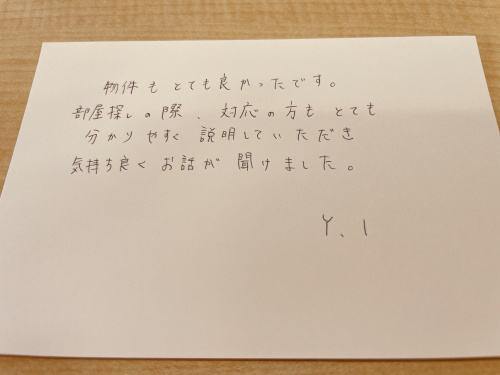 物件もとても良かったです。
部屋探しの際、対応の方もとても
分かりやすく説明していただき
気持ち良くお話が聞けました。
Y、I